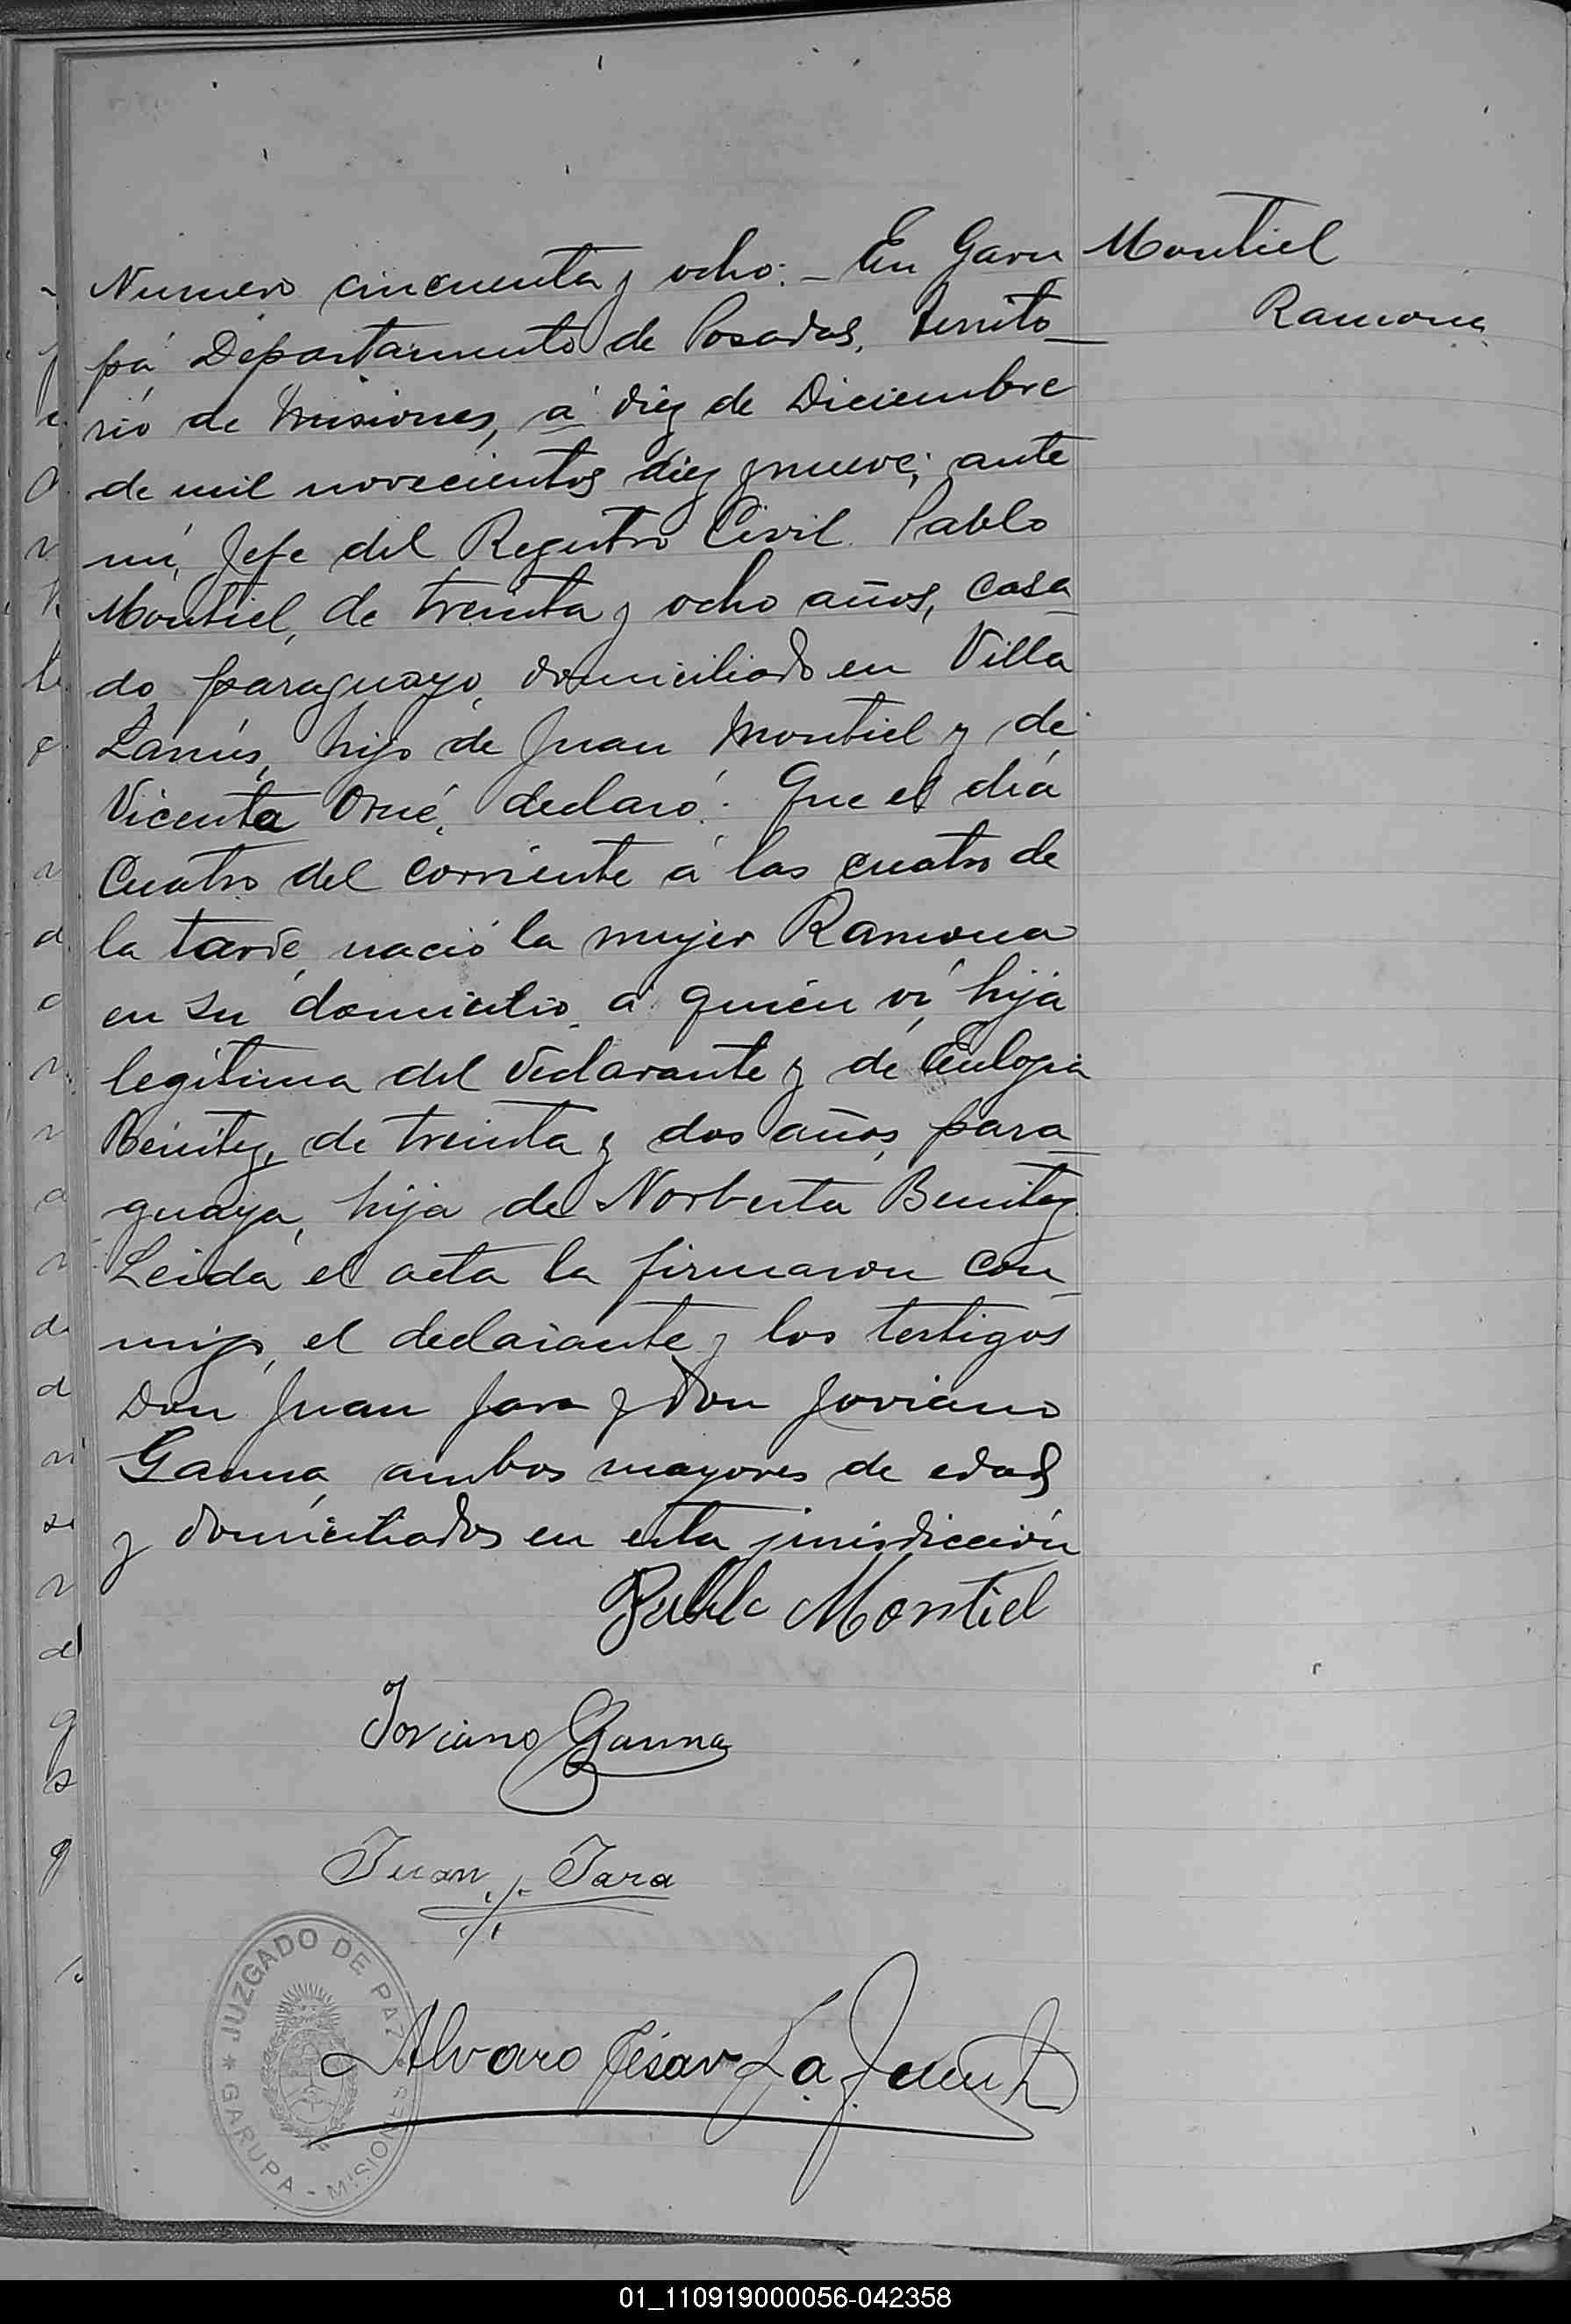 Numero cincuenta y ocho:- En Garu
Montiel
Ramona
pá Departamento de Posadas, Territo-
rio de Misiones, á diez de Diciembre
de mil novecientos diez y nueve; ante
mi, Jefe del Registro Civil Pablo
Montiel, de treinta y ocho años, casa-
do, paraguayo, domiciliado en Villa
Lanús, hijo de Juan Montiel y de
Vicenta Orué, declaró: Que el día
Cuatro del corriente á las cuatro de
la tarde, nació la mujer Ramona
en su domicilio, á quién ví, hija
legítima del declarante y de Eulogia
Benitez, de treinta y dos años, para-
guaya, hija de Norberta Benitez.
Leida el acta la firmaron con-
migo, el declarante y los testigos
Don Juan Jara y don Joviano
Gauna, ambos mayores de edad
y domiciliados en esta jurisdicción
Pablo Montiel
Joviano Gauna
Juan Jara
Alvaro César La
* JUZGADO DE PAZ *
GARUPA - MISIONES
01_110919000056-042358